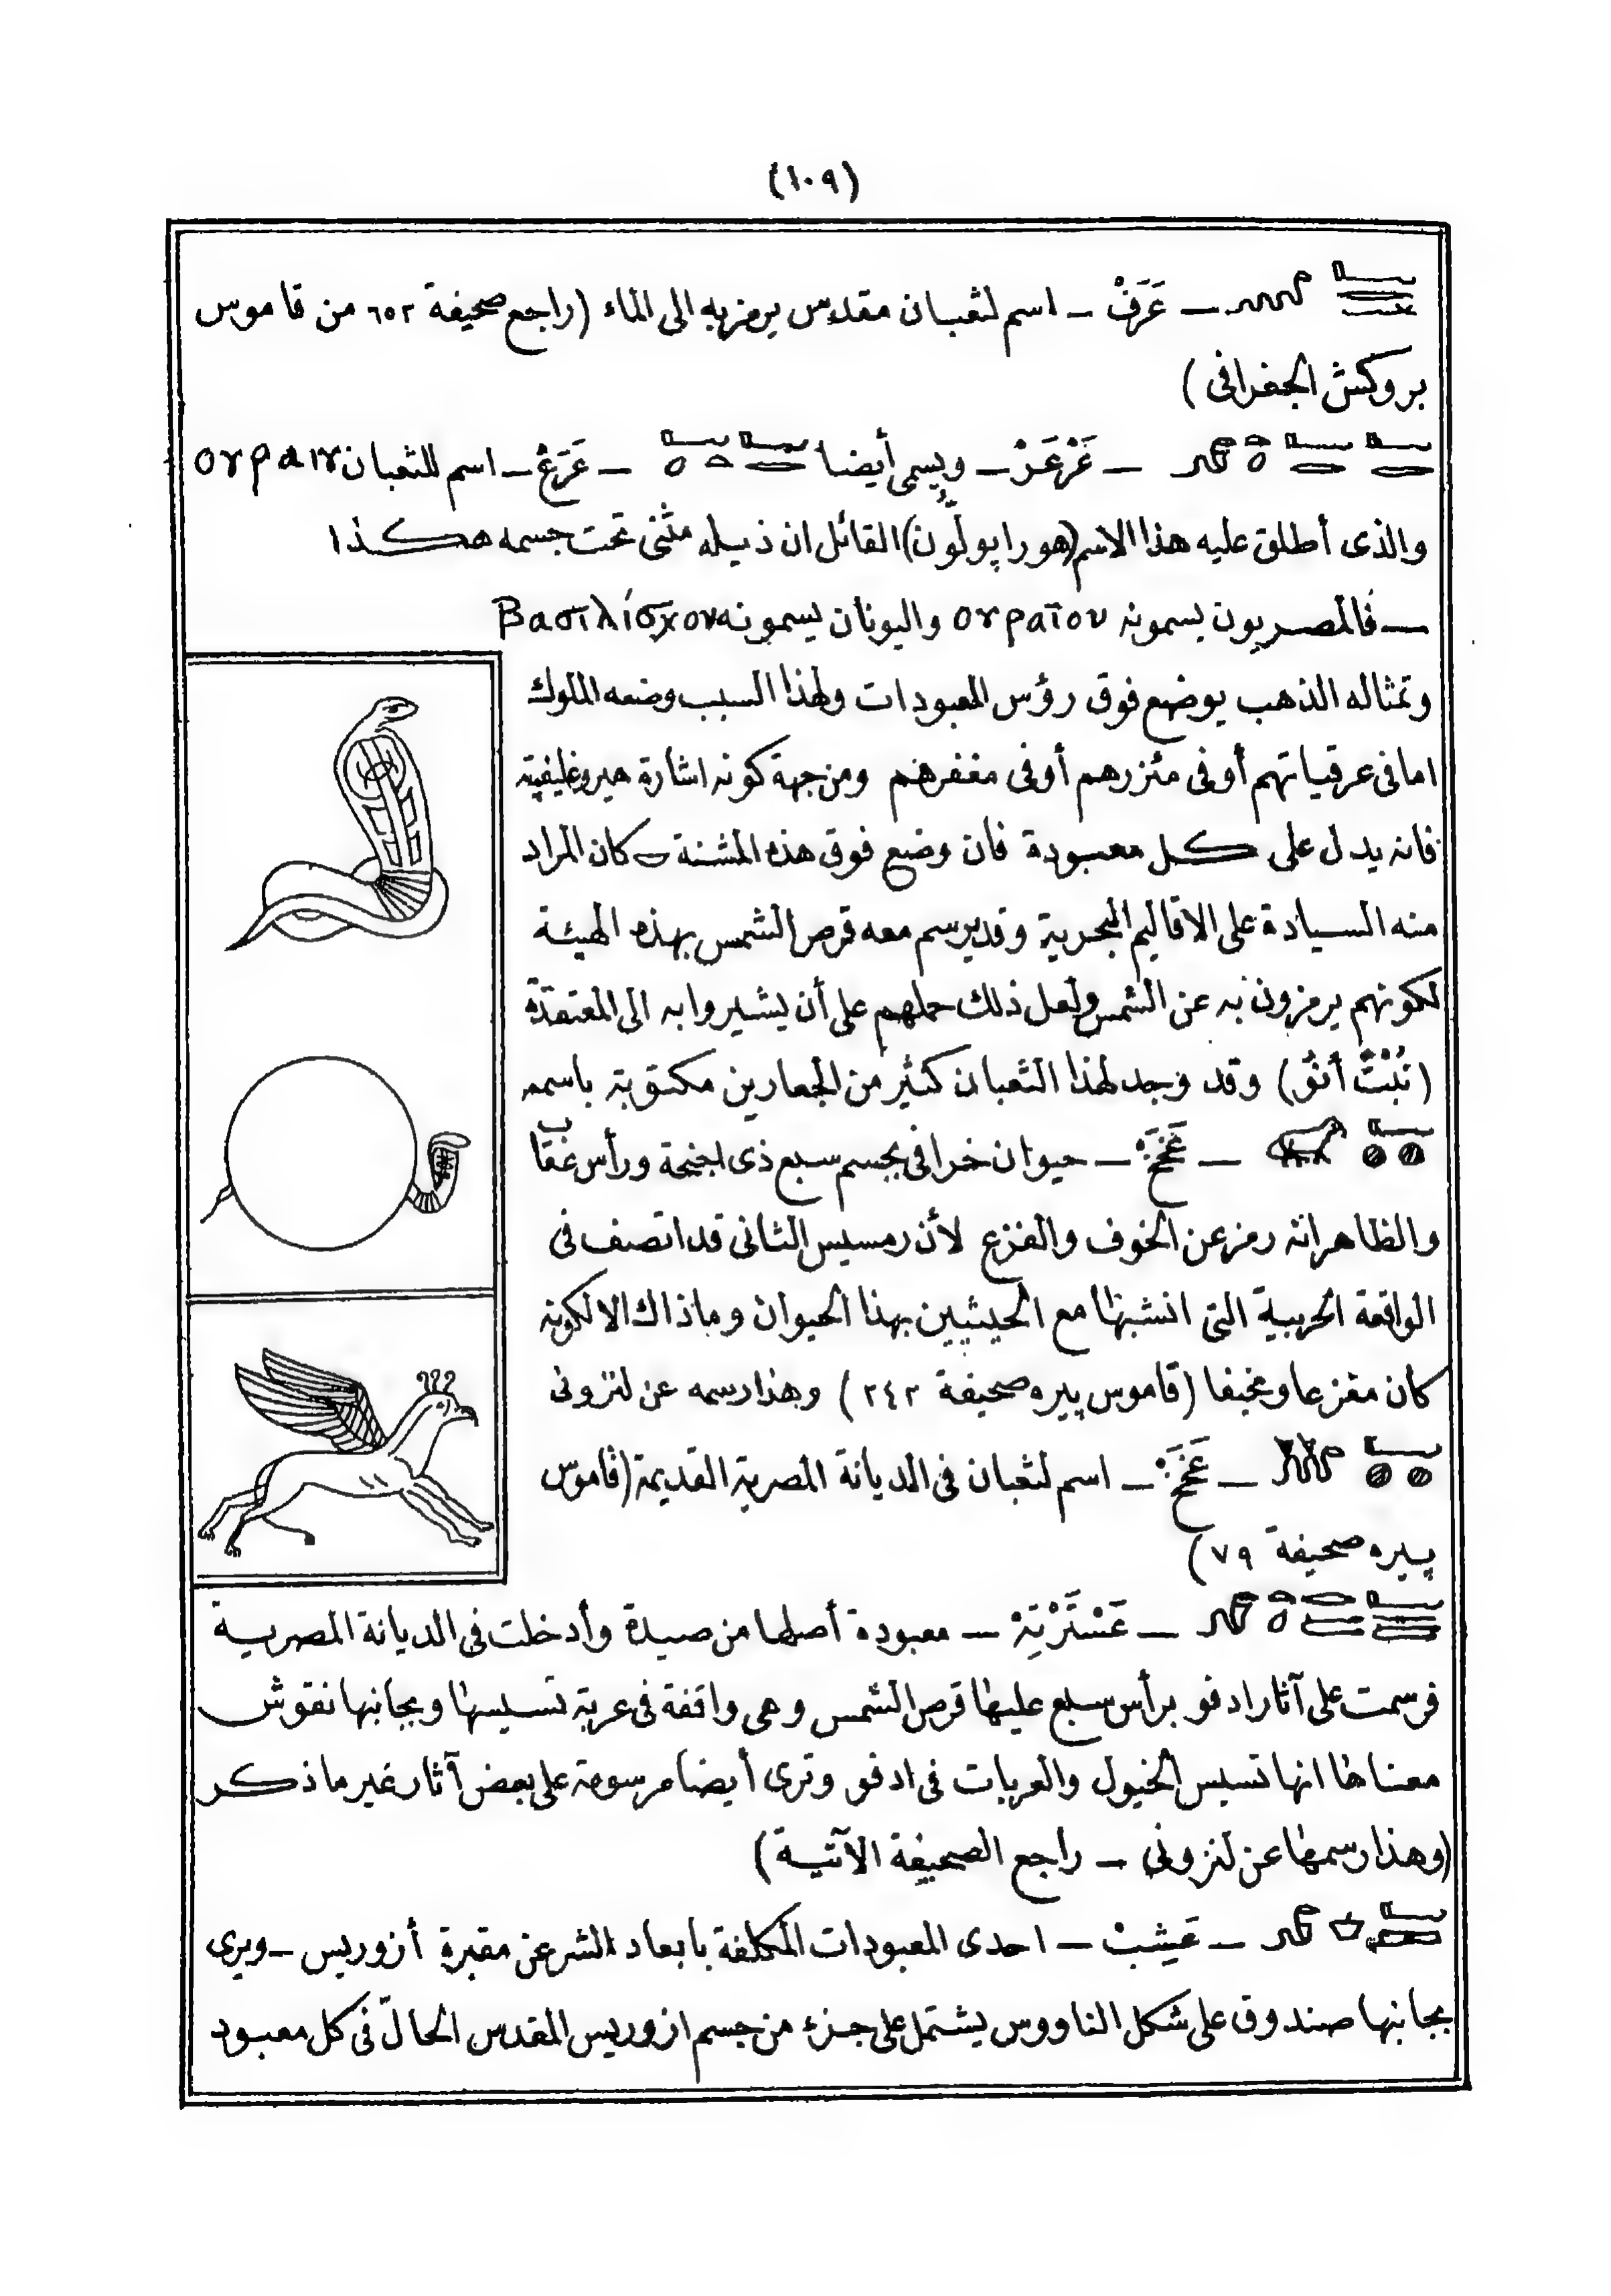 (١٠٩)
— عَرَفْ — اسم لثعبان مقدس يرمز به الى الماء (راجع صحيفة ٦٥٢ من قاموس
بروكش الجغرافى)
— عَرْعَرْ — ويسمى أيضا — عَرَعْ — اسم للثعبان
والذى أطلق عليه هذا الاسم (هورابولّون) القائل ان ذيله مثنى تحت جسمه هكذا
— فالمصريون يسمونه ουραῖον واليونان يسمونه Βασιλίσχον
وتمثاله الذهب يوضع فوق رؤس المعبودات ولهذا السبب وضعه الملوك
اما فى عرقياتهم أو فى مئزرهم أو فى مغفرهم ومن جهة كونه اشارة هيروغليفية
فانه يدل على كل معبودة فان وضع فوق هذه المشنة كان المراد
منه السيادة على الاقاليم البحرية وقد يرسم معه قرص الشمس بهذه الهيئة
لكونهم يرمزون به عن الشمس ولعل ذلك حملهم على أن يشيروا به الى المعتقدة
(نُبْتْ أنقْ) وقد وجد لهذا الثعبان كثير من الجعارين مكتوبة باسمه
— عَخَخْ — حيوان خرافى بجسم سبع ذى اجنحة ورأس عقاب
والظاهر انه رمز عن الخوف والفزع لأن رمسيس الثانى قد اتصف فى
الواقعة الحربية التى انشبها مع الحيثيين بهذا الحيوان وما ذاك الا لكونه
كان مفزعا ومخيفا (قاموس پيره صحيفة ٢٤٢) وهذا رسمه عن لنزونى
— عَخَخْ — اسم لثعبان فى الديانة المصرية القديمة (قاموس
پيره صحيفة ٧٩)
— عَسْتَرْتِهْ — معبودة أصلها من صيدة وأدخلت فى الديانة المصرية
فرسمت على آثار ادفو برأس سبع عليها قرص الشمس وهى واقفة فى عربة تسيسها وبجانبها نقوش
معناها انها تسيس الخيول والعربات فى ادفو وترى أيضا مرسومة على بعض آثار غير ما ذكر
(وهذا رسمها عن لنزونى — راجع الصحيفة الآتية)
— عَشِبْتْ — احدى المعبودات المكلفة بابعاد الشر عن مقبرة أزوريس — ويرى
بجانبها صندوق على شكل الناووس يشتمل على جزء من جسم ازوريس المقدس الحالّ فى كل معبود